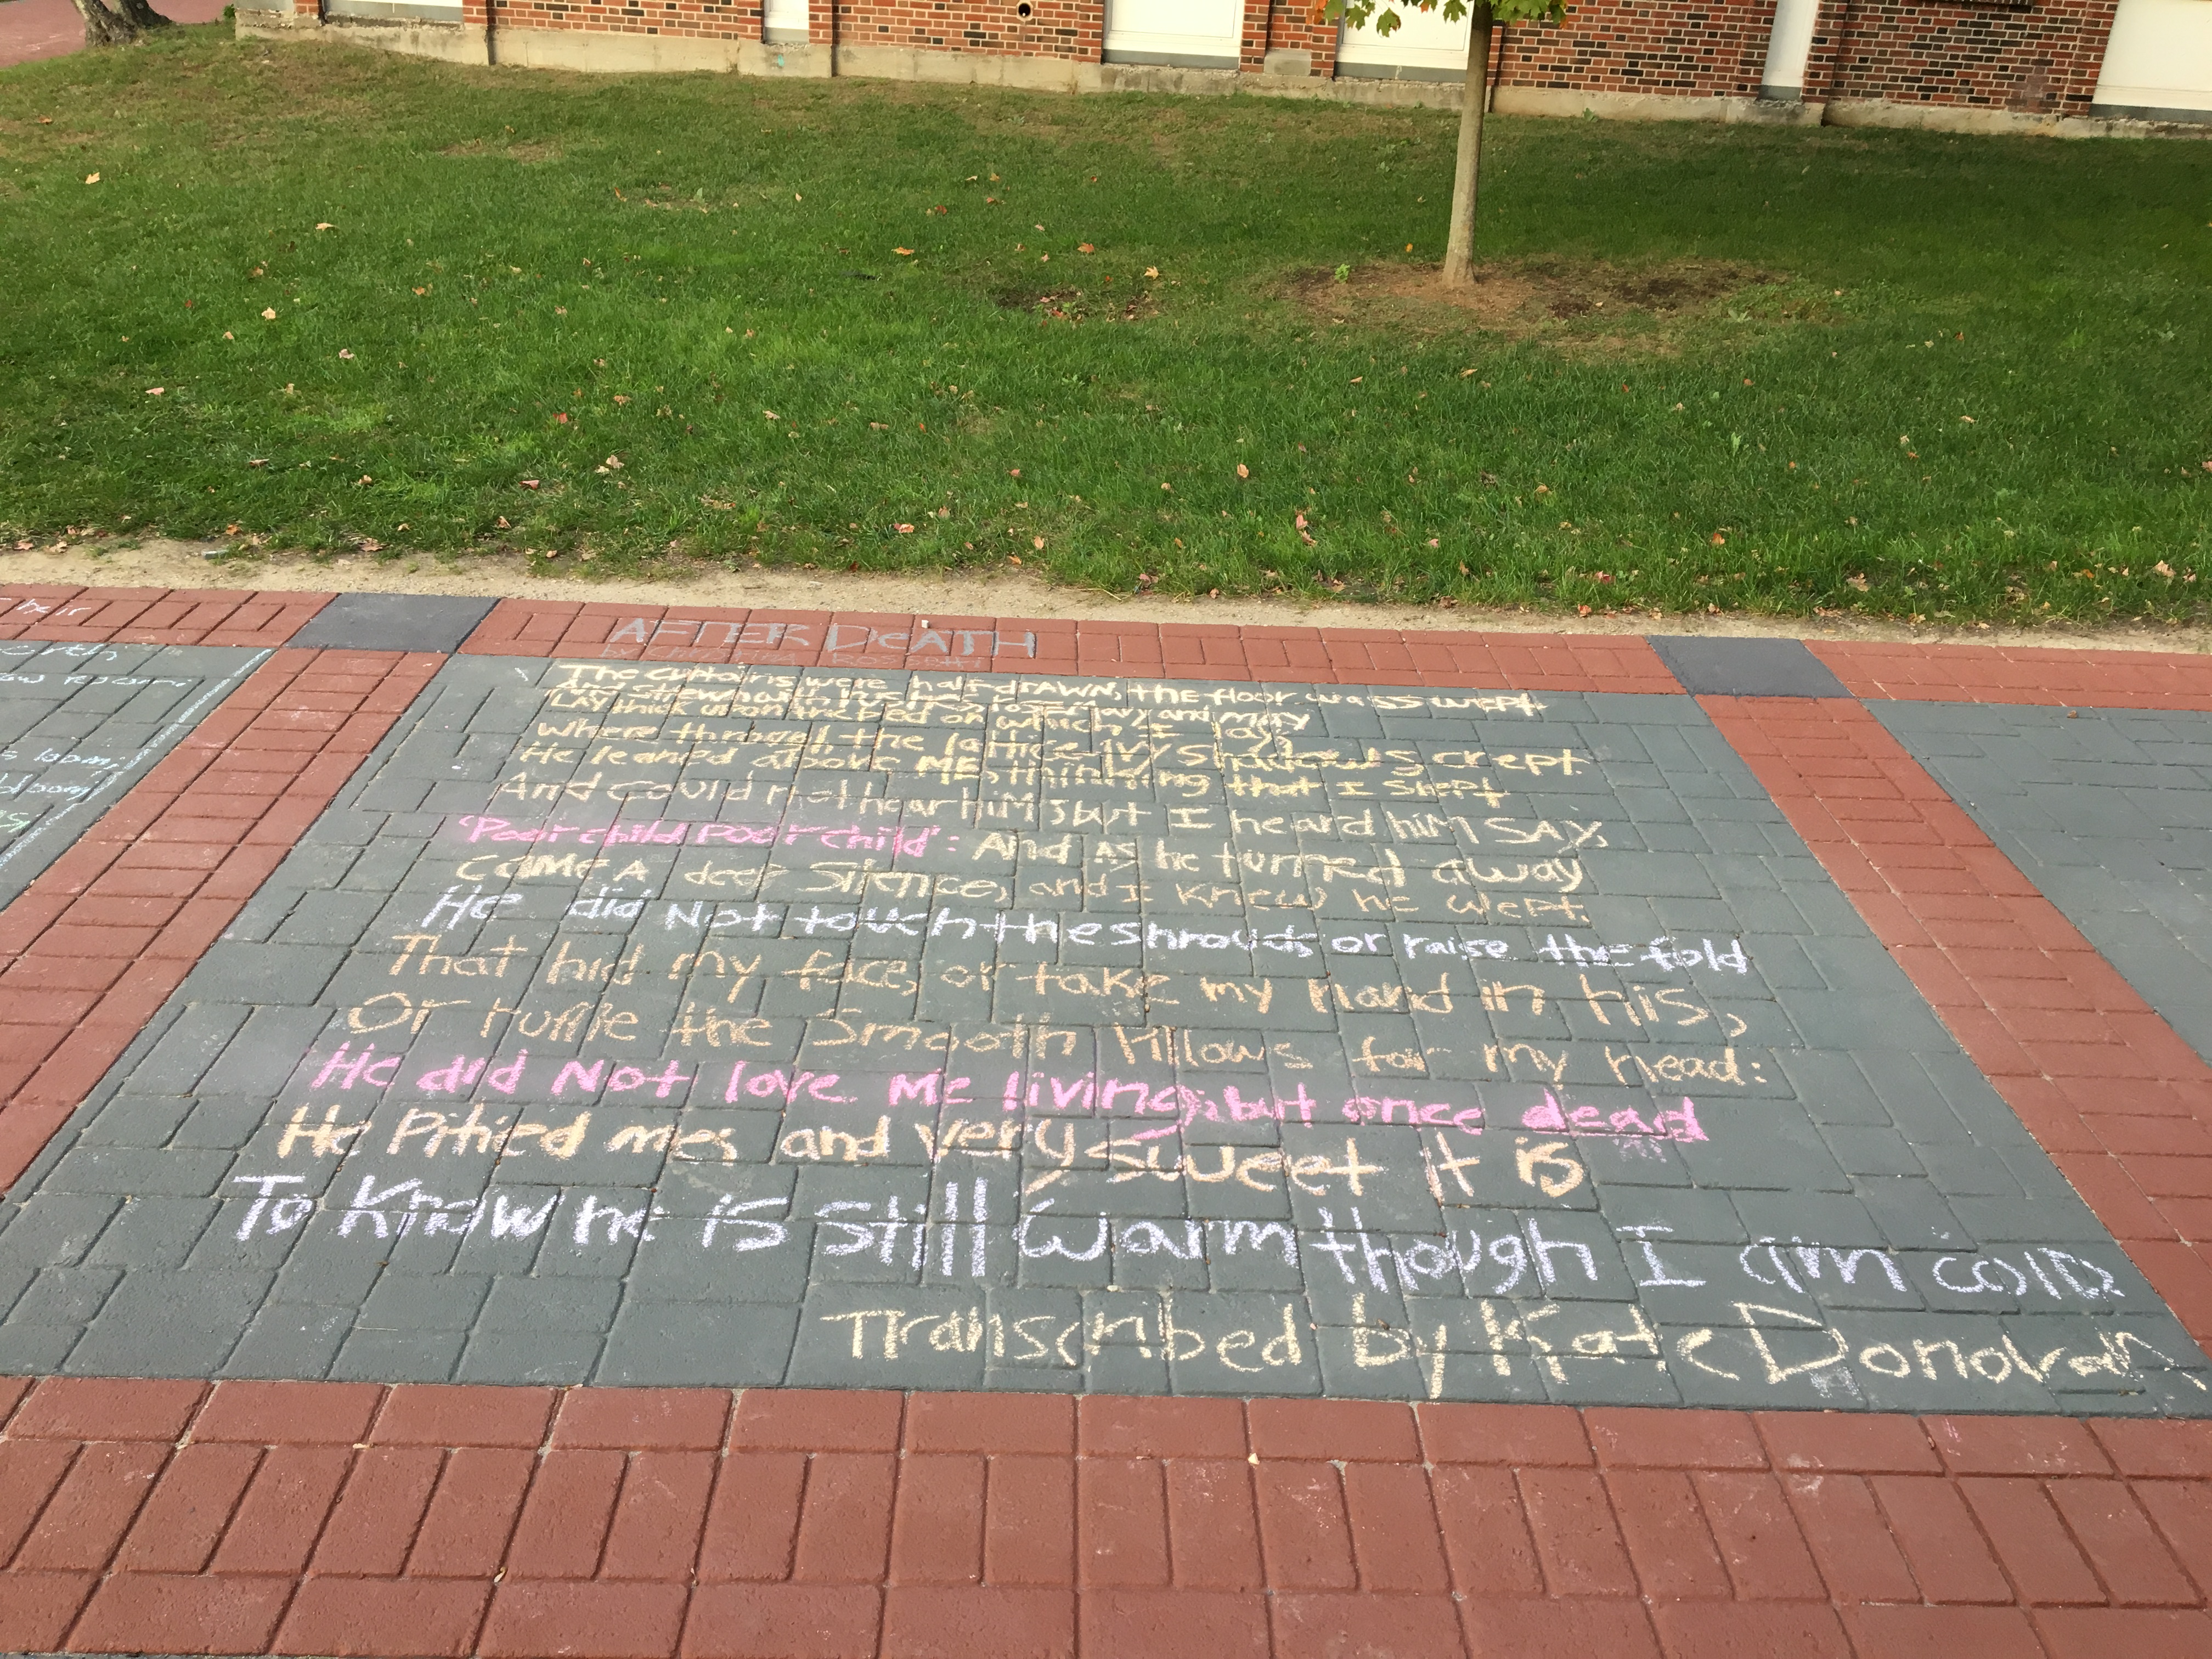 AFTER DeATH
by Christina Rossetti
The curtains were half drAWN, tHE floor was swept
And strewn with rushes, rosemary and may
LAy thick upon the bed on which I lay,
where through the lattice ivy shadows crept.
He leaned above ME, thinking that I slept
And could not hear hiM; but I heard hiM SAY,
'Poor child poor child': And as he turned away
CAME A deep Silence, and I knew he wept.
He did Not touch the shroud, or raise the fold
That hid my face, or take my hand in his,
Or ruffle the smooth Pillows for my head:
He did Not love Me living; but once dead
He Pitied me; and very sweet it is
To Know he is still warm though I am colD
Transcribed by Kate Donovan
heir